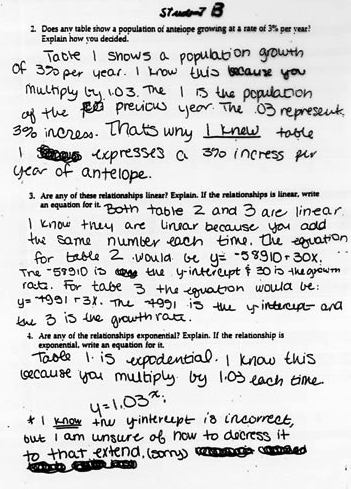 Student B
2. Does any table show a population of antelope growing at a rate of 3% per year?
Explain how you decided.
Table 1 shows a population growth
of 3% per year. I know this because you
multiply by 1.03. The 1 is the population
of the previous year. The .03 represents
3% incress. Thats why I knew table
1 expresses a 3% incress per
year of antelope.
3. Are any of these relationships linear? Explain. If the relationships is linear, write
an equation for it. Both table 2 and 3 are linear.
I know they are linear because you add
the same number each time. The equation
for table 2 would be y= -58910 + 30x.
The -58910 is the y-intercept & 30 is the growth
rate. For table 3 the equation would be:
y= -4951 + 3x. The -4951 is the y-intercept and
the 3 is the growth rate.
4. Are any of the relationships exponential? Explain. If the relationship is
exponential, write an equation for it.
Table 1 is expodential. I know this
because you multiply by 1.03 each time.
y=1.03ˣ;
* I know the y-intercept is incorrect,
but I am unsure of how to decress it
to that extend. (sorry)